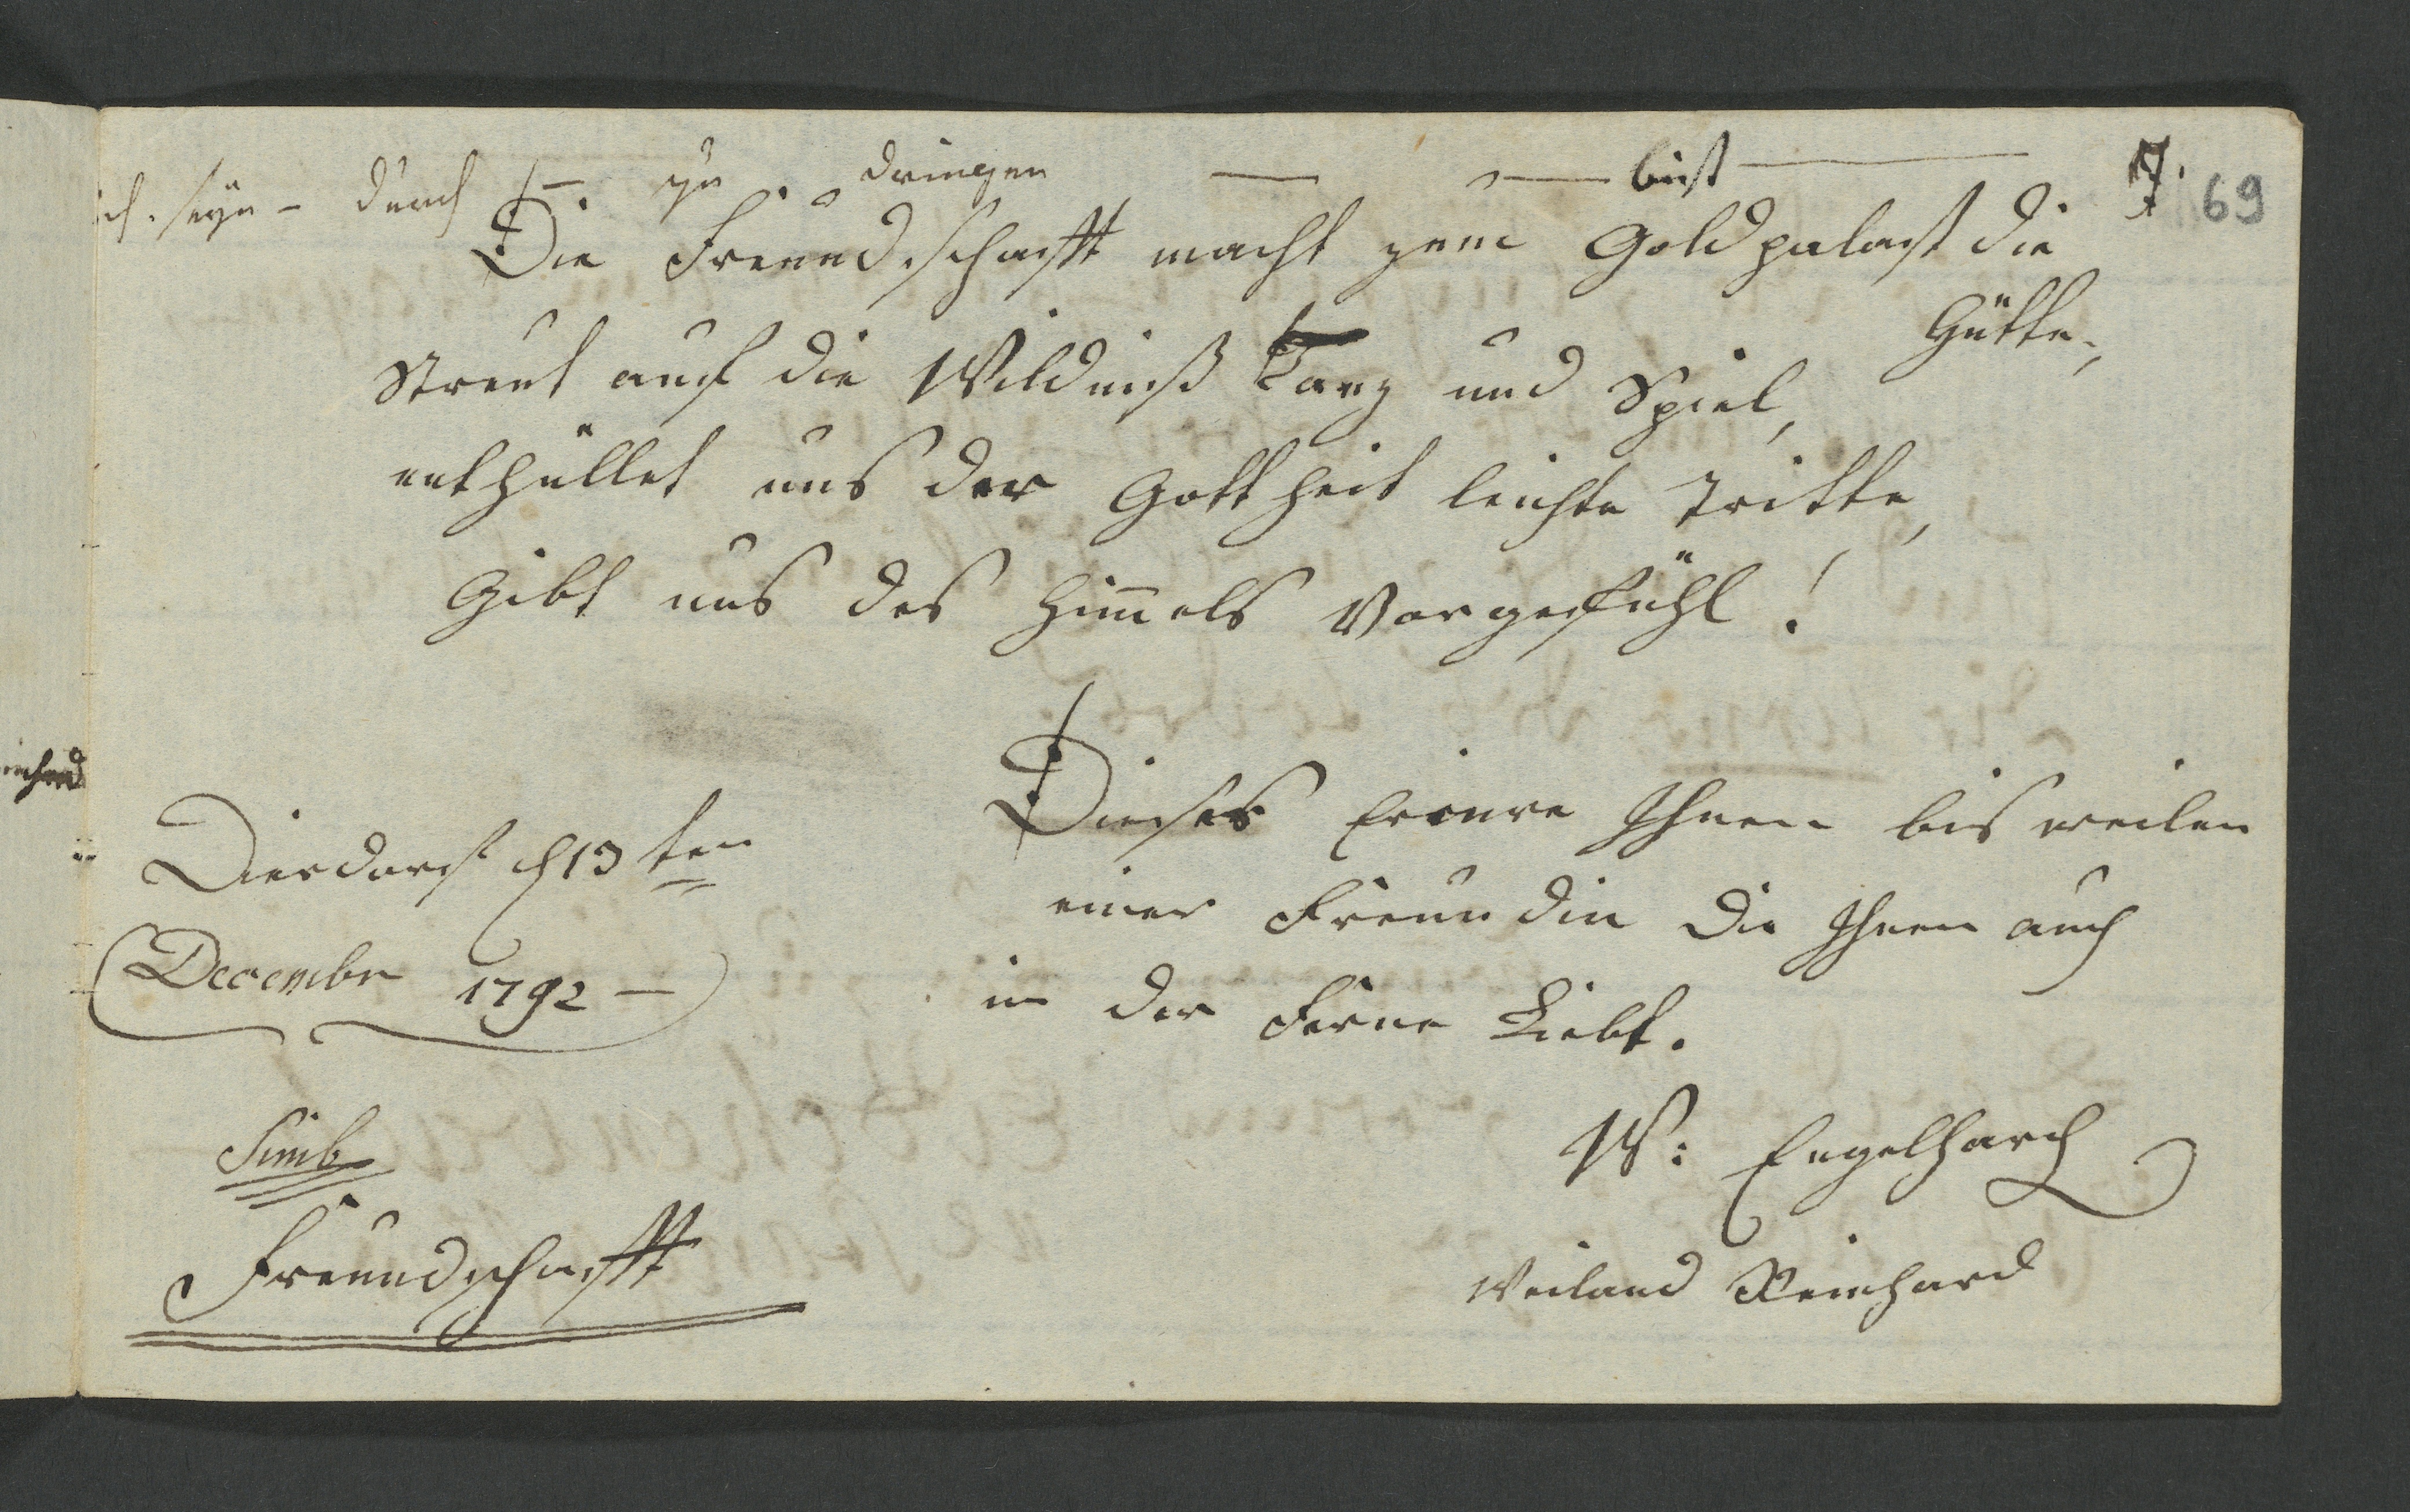 seyn - durch zu dringen — — bist — 7. 69
Die Freundschafft macht zum Goldpalast die
Hütte,
Streut auf die Wildniß Tanz und Spiel,
enthüllet uns der Gottheit leichte Tritte,
Gibt uns des Him̅els Vorgefühl!
Dieses Erinre Ihnen bis weilen
einer Freundin Die Ihnen auch
in der Ferne Liebt.
W: Engelhard
Weiland Reinhard
Dierdorf d 13ten
Decembr 1792 —
Simb
Freundschafft